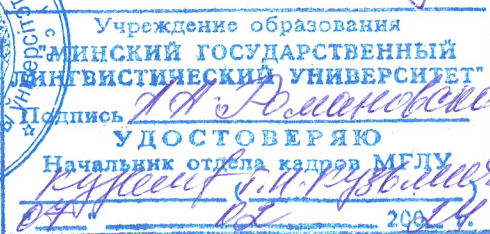 Учреждение образования
"МИНСКИЙ ГОСУДАРСТВЕННЫЙ
ЛИНГВИСТИЧЕСКИЙ УНИВЕРСИТЕТ"
Подпись А.А. Романовско
УДОСТОВЕРЯЮ
Начальник отдела кадров МГЛУ
Т.И. Кузьмич
02 200